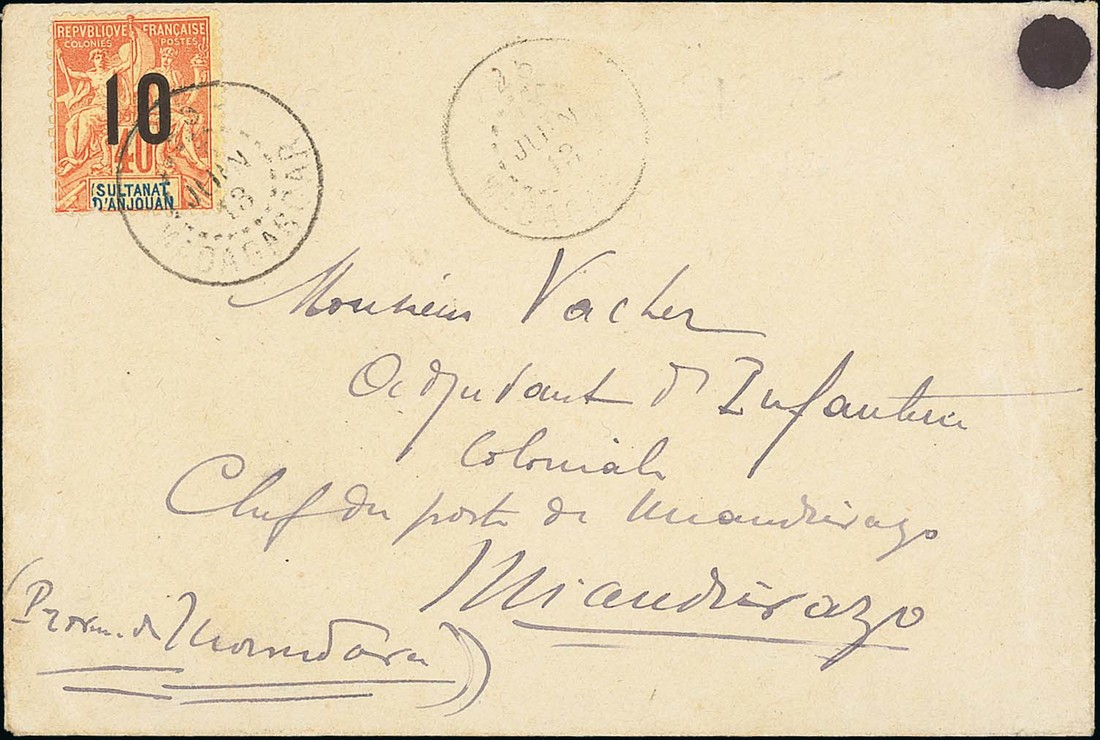 REPVBLIQUE FRANÇAISE
COLONIES POSTES
10
40
SULTANAT
D'ANJOUAN
JUIN
13
MADAGASCAR
25
JUIN
13
Monsieur Vacher
Adjudant d'Infanterie
Coloniale
Chef du poste de Miandrivazo
Miandrivazo
(Provin. de Morondava)